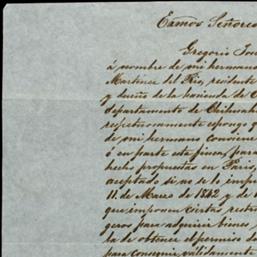 Exmos Señores
Gregorio José
á nombre de mi hermano
Martinez del Rio, residente
y dueño de la hacienda de
departamento de Chihuah
respetuosamente expongo q
de mi hermano conviene
ó en parte esta finca, para
hecho propuestas Paris,
aceptado si no se lo impi
11. de Marzo de 1842 y de
que imponen ciertas restri
geros para adquirir bienes
la de obtener el permiso
para consumir validamente